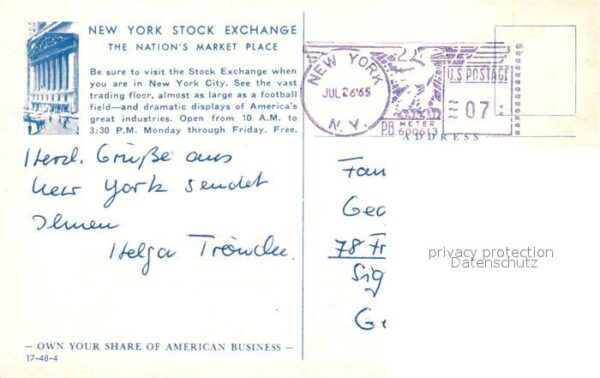 NEW YORK STOCK EXCHANGE
THE NATION'S MARKET PLACE
Be sure to visit the Stock Exchange when
you are in New York City. See the vast
trading floor, almost as large as a football
field—and dramatic displays of America's
great industries. Open from 10 A.M. to
3:30 P.M. Monday through Friday. Free.
Herzl. Grüße aus
New York sendet
Ihnen
Helga
— OWN YOUR SHARE OF AMERICAN BUSINESS —
17-48-4
NEW YORK
JUL 26'65
N.Y.
U.S. POSTAGE
07
P.B. METER
600613
ADDRESS
Fam
Geo
78 Fr
Sig
Ge
privacy protection
Datenschutz